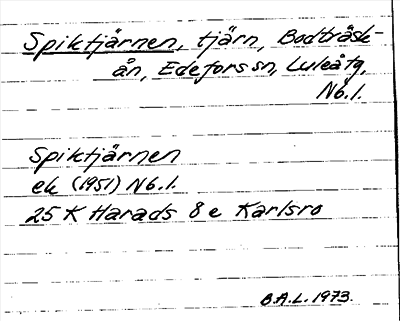 Spiktjärnen, tjärn, Bodträsk-
ån, Edefors sn, Luleå tg,
Nb.l.
Spiktjärnen
ek (1951) Nb.l.
25 K Harads 8 e Karlsro
B.A.L. 1973.